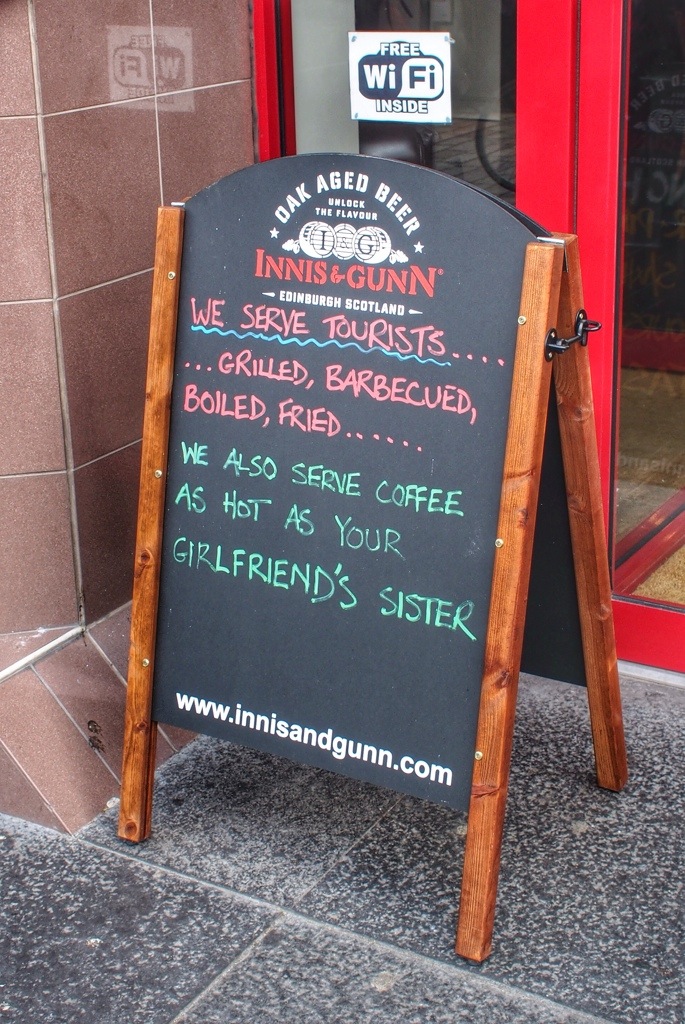 FREE
WiFi
INSIDE
OAK AGED BEER
UNLOCK
THE FLAVOUR
I&G
INNIS & GUNN®
EDINBURGH SCOTLAND
WE SERVE TOURISTS....
...GRILLED, BARBECUED,
BOILED, FRIED......
WE ALSO SERVE COFFEE
AS HOT AS YOUR
GIRLFRIEND'S SISTER
www.innisandgunn.com